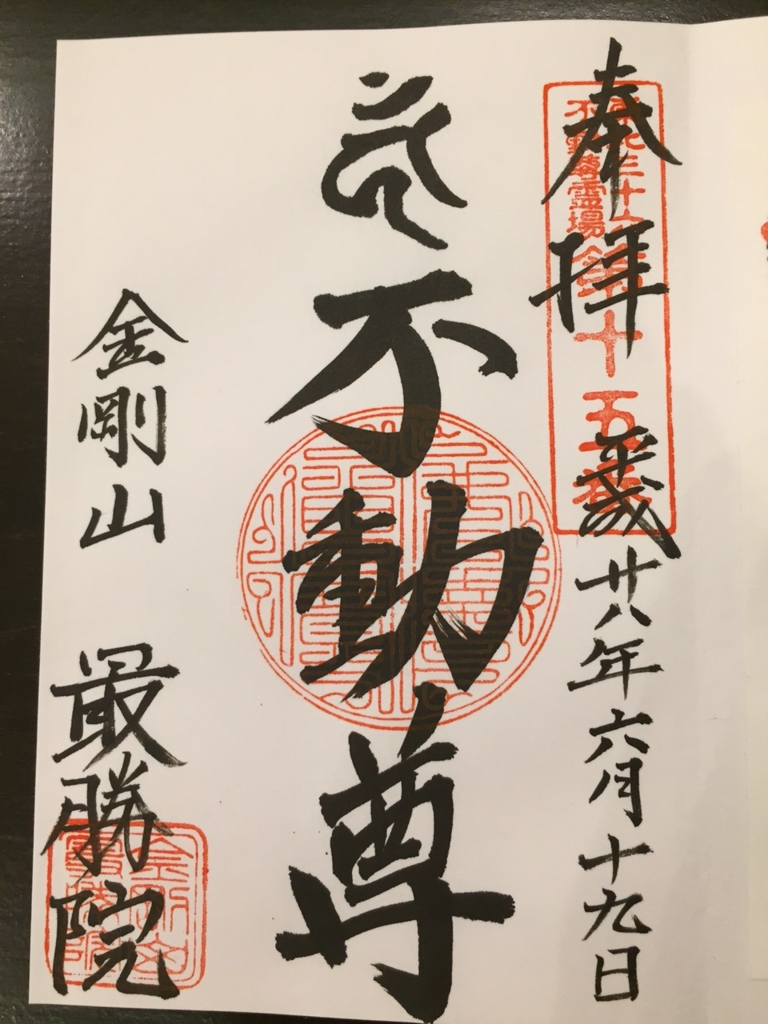 奉拝
平成廿八年六月十九日
東北三十六
不動尊霊場
第十五番
不動尊
金剛山
最勝院